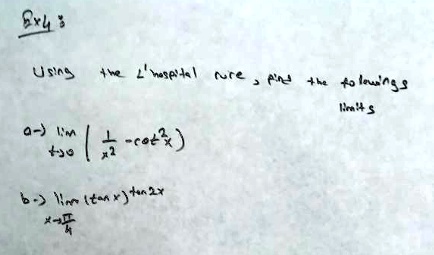 Ex4:
Using the L'hospital rure, find the followings
limits
a-) lim t→0 ( 1/x² - cot²x )
b-) lim x→π/4 (tan x)^tan 2x